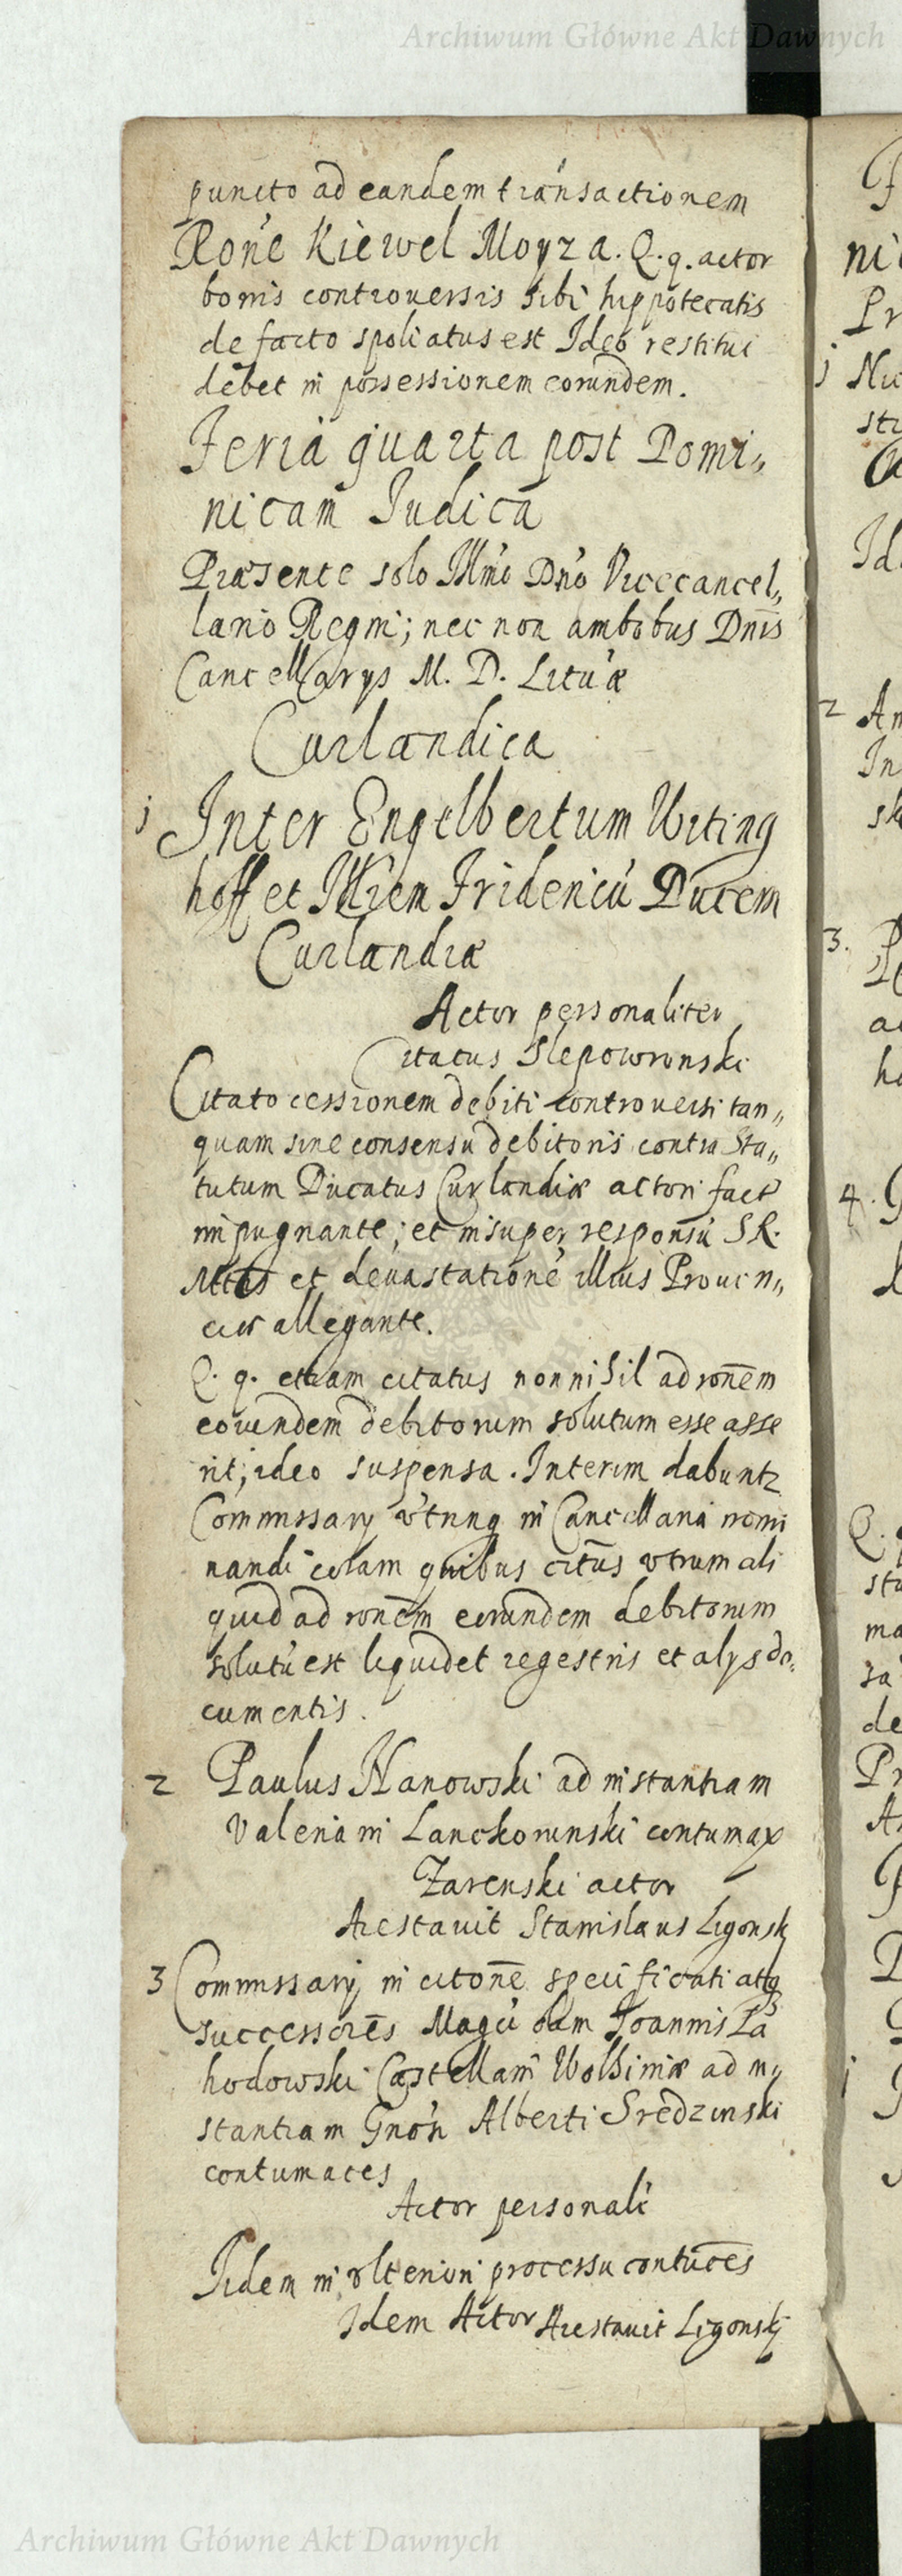 Archiwum Główne Akt Dawnych
puncto ad eandem transactionem
Rone Kiewel Moyza. Q. q. actor
bonis controversis sibi hippotecatis
de facto spoliatus est Ideo restitui
debet in possessionem eorundem.
Feria quarta post Domi,,
nicam Iudica
Præsente solo Illmo Dno Vicecancel,,
lario Regni; nec non ambobus Dnis
Cancellarys M. D. Lituæ
Curlandica
1 Inter Engelbertum Viting
hoff et Illrem Fridericu Ducem
Curlandiæ
Actor personaliter
Citatus Slepowronski
Citato cessionem debiti controversi tan,,
quam sine consensu debitoris contra Sta,,
tutum Ducatus Curlandiæ actori fact
impugnante; et insuper responsu S R.
Mtis et devastatione illius Provin,,
ciæ allegante.
Q. q. etiam citatus nonnihil ad ronem
eorundem debitorum solutum esse asse
rit; ideo suspensa. Interim dabuntz
Commissary utrinq in Cancellaria nomi
nandi coram quibus citus utrum ali
quid ad ronem eorundem debitorum
solutu est liquidet regestris et alys do,
cumentis.
2 Paulus Hanowski ad instantiam
Valeriani Lanckorunski contumax
Zarenski actor
Arestavit Stanislaus Ligonsk
3 Commissarij in citone specificati atq
successores Magci olim Joannis La
hodowski Castellani Wolhiniæ ad in,,
stantiam Gnosi Alberti Sredzinski
contumaces
Actor personali
Iidem in ulteriori processu contuces
Idem Actor Arestavit Ligonskj
Pr
st
Id
2 Am
In
sk
3.
ho
4.
Q.
st
ma
sa
de
Pr
Archiwum Główne Akt Dawnych